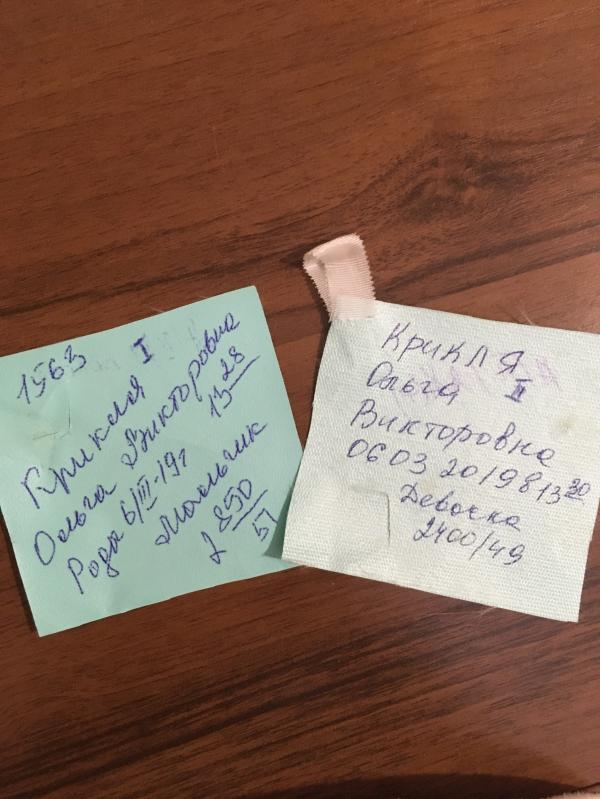 1563
I
Крикля
Ольга Викторовна
Рода 6/III-19г 13 28
Мальчик
2 850
51
Крикля
II
Ольга
Викторовна
06 03 2019 в 13 30
Девочка
2400/49